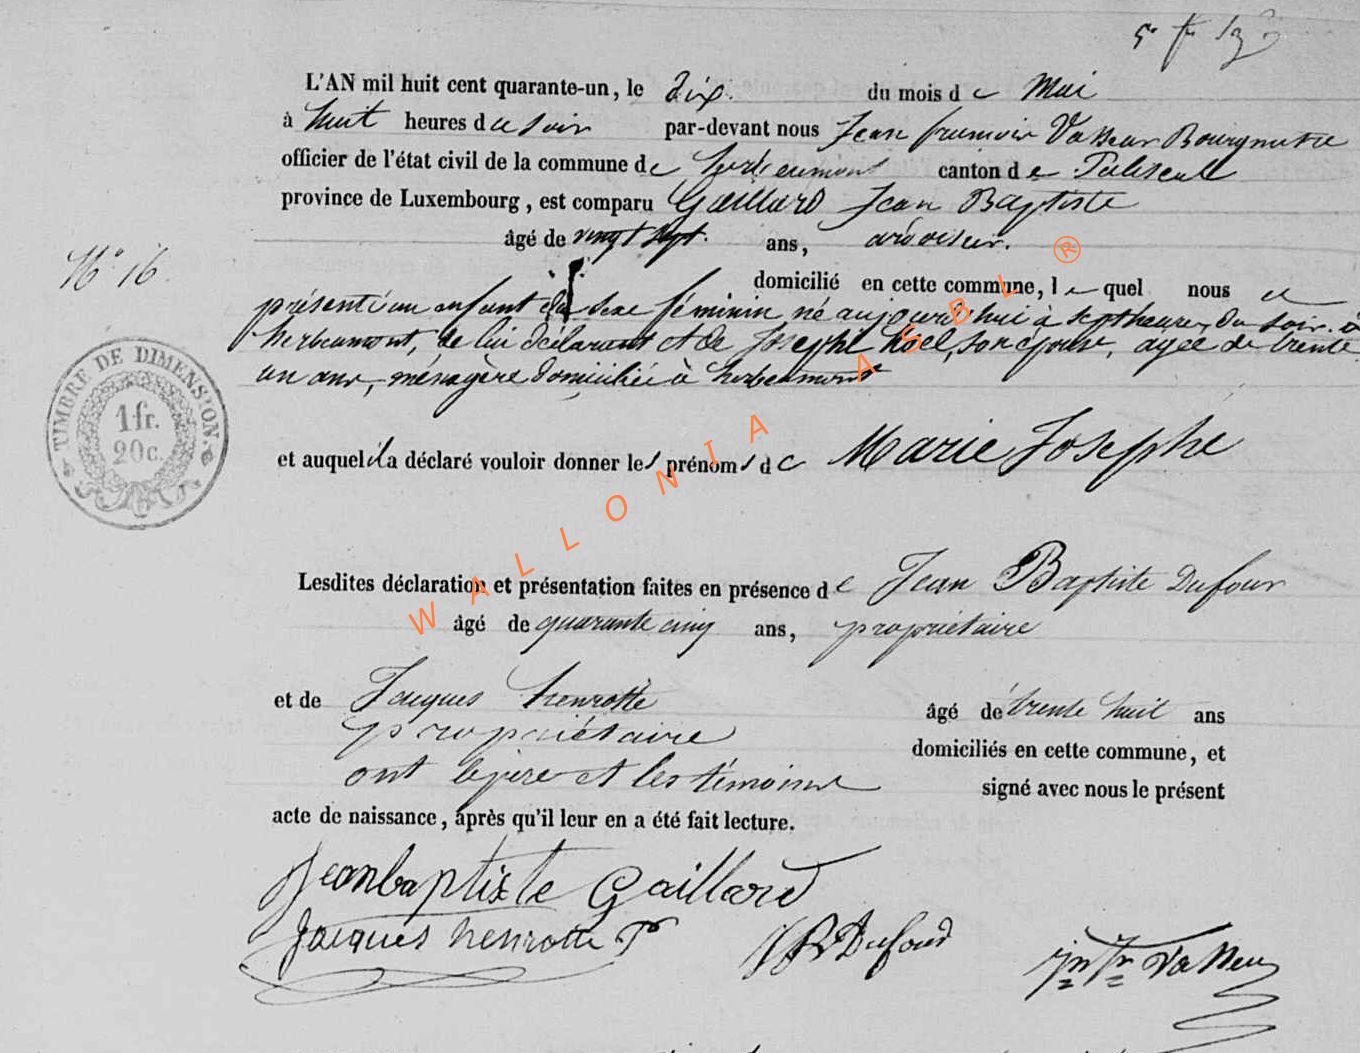 L'AN mil huit cent quarante-un, le dix du mois de Mai
à huit heures du soir par-devant nous Jean Vasseur Bourgmestre
officier de l'état civil de la commune de herbeumont canton de Paliseul
province de Luxembourg, est comparu Gaillard Jean Baptiste
âgé de vingt sept ans, ardoisier.
N° 16
domicilié en cette commune, lequel nous a
présenté un enfant du sexe féminin né aujourd'hui à sept heures du soir à
herbeumont, de lui déclarant et de Josephe Noel, son épouse, agée de trente
un ans, ménagère domiciliée à herbeumont
TIMBRE DE DIMENSION.
1 fr.
20 c.
et auquel il a déclaré vouloir donner les prénoms de Marie Josephe
Lesdites déclaration et présentation faites en présence de Jean Baptiste Dufour
âgé de quarante cinq ans, propriétaire
et de Jacques henrotte âgé de trente huit ans
propriétaire domiciliés en cette commune, et
ont le père et les témoins signé avec nous le présent
acte de naissance, après qu'il leur en a été fait lecture.
Jeanbaptiste Gaillard
Jacques henrotte
JB Dufour
Jn Fr Vasseur
WALLONIA ASBL ®